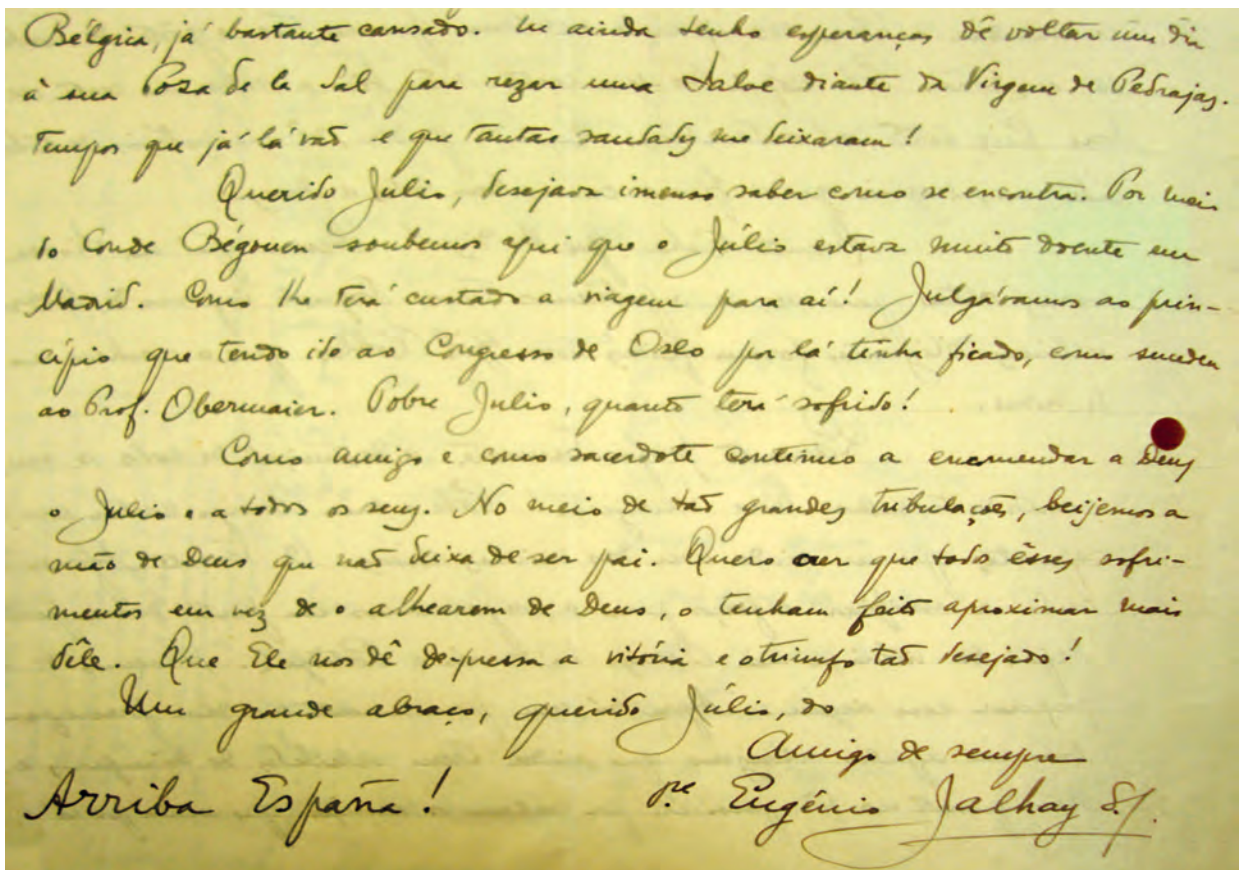 Bélgica, já bastante cansado. ainda tenho esperanças de voltar um dia
à sua Poza de la Sal para rezar uma Salve diante da Virgem de Pedrajas.
Tempos que já lá vaõ e que tantas saudades me deixaram!
Querido Julio, desejava imenso saber como se encontra. Por meio
do Conde Bégouen soubemos aqui que o Júlio estava muito doente em
Madrid. Como lhe terá custado a viagem para aí! Julgávamos ao prin-
cípio que tendo ido ao Congresso de Oslo por lá tinha ficado, como sucedeu
ao Prof. Obermaier. Pobre Julio, quanto terá sofrido!
Como amigo e como sacerdote continuo a encomendar a Deus
o Julio e a todos os seus. No meio de taõ grandes tribulações, beijemos a
mão de Deus que naõ deixa de ser pai. Quero crer que todos êsses sofri-
mentos em vez de o alhearem de Deus, o tenham feito aproximar mais
dêle. Que Ele nos dê depressa a vitória e o triunfo taõ desejado!
Um grande abraço, querido Júlio, do
Amigo de sempre
Arriba España! P.e Eugénio Jalhay S.J.